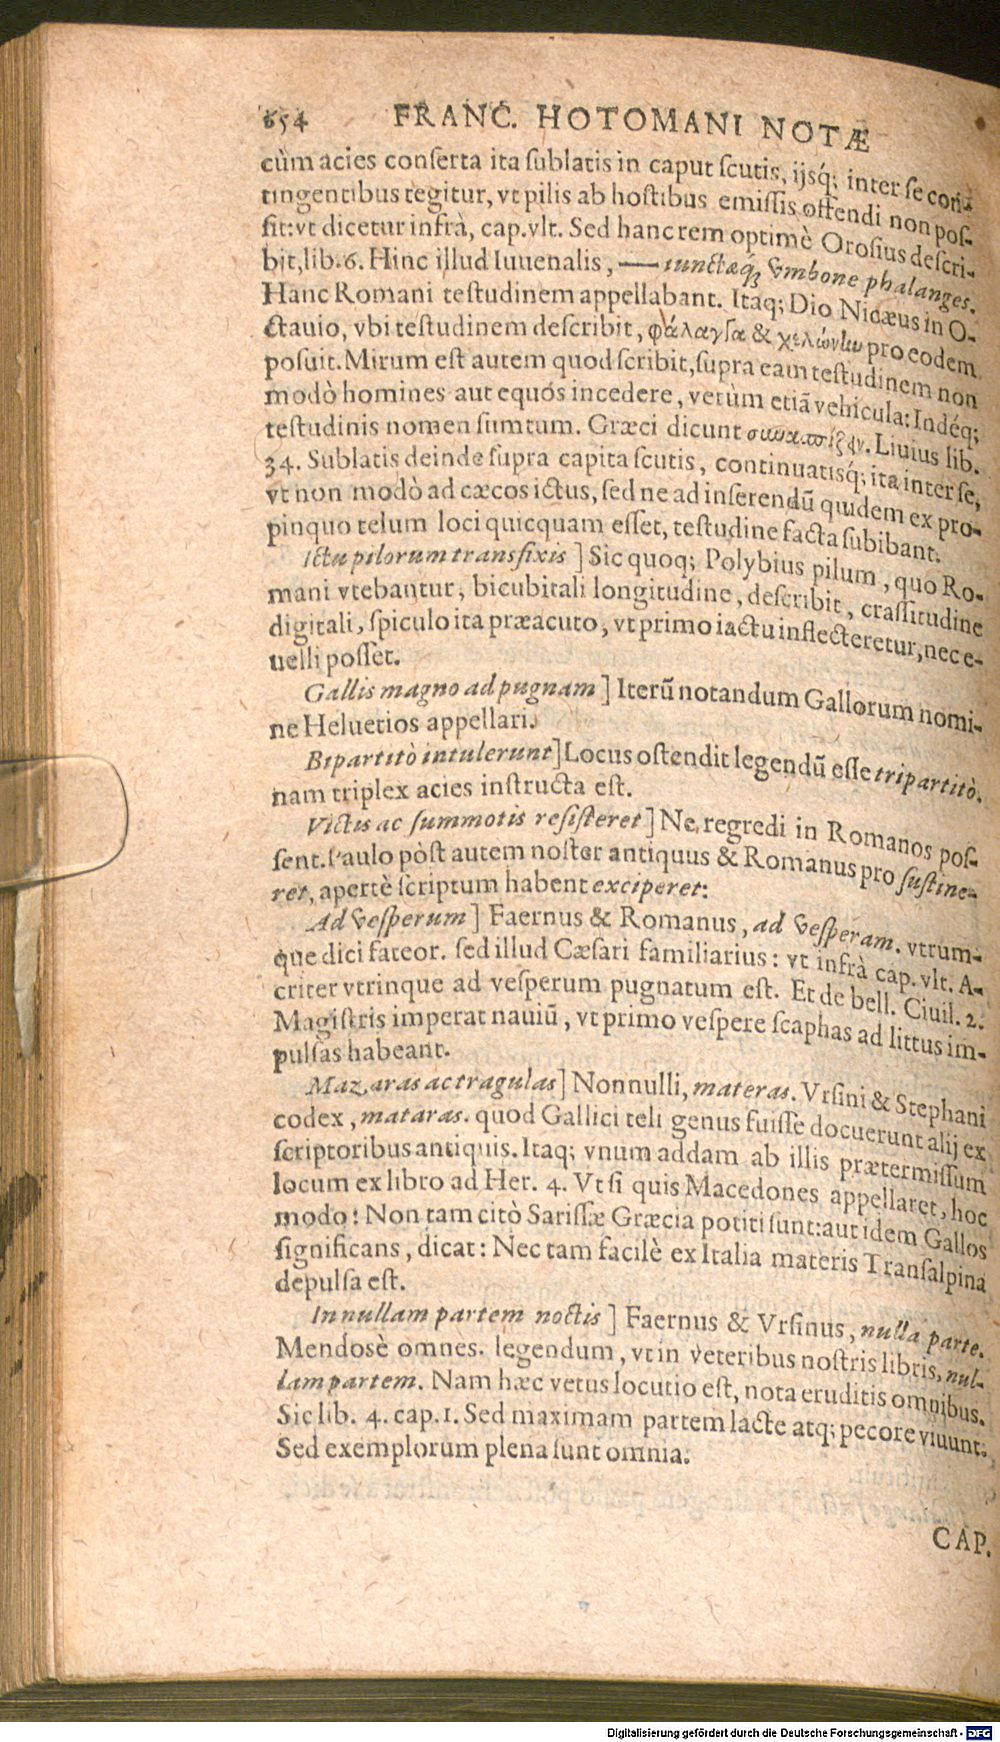 654 FRANC. HOTOMANI NOTÆ
cùm acies conserta ita sublatis in caput scutis, ijsq́; inter se con-
tingentibus tegitur, vt pilis ab hostibus emissis offendi non pos-
sit: vt dicetur infrà, cap. vlt. Sed hanc rem optimè Orosius descri-
bit, lib. 6. Hinc illud Iuuenalis, — iunctæq́; vmbone phalanges.
Hanc Romani testudinem appellabant. Itaq; Dio Nicæus in O-
ctauio, vbi testudinem describit, φάλαγγα & χελώνην pro eodem
posuit. Mirum est autem quod scribit, supra eam testudinem non
modò homines aut equos incedere, verùm etiā vehicula: Indéq;
testudinis nomen sumtum. Græci dicunt Liuius lib.
34. Sublatis deinde supra capita scutis, continuatisq́; ita inter se,
vt non modò ad cæcos ictus, sed ne ad inserendū quidem ex pro-
pinquo telum loci quicquam esset, testudine facta subibant.
Ictu pilorum transfixis ] Sic quoq; Polybius pilum, quo Ro-
mani vtebantur, bicubitali longitudine, describit, crassitudine
digitali, spiculo ita præacuto, vt primo iactu inflecteretur, nec e-
uelli posset.
Gallis magno ad pugnam ] Iterū notandum Gallorum nomi-
ne Heluetios appellari.
Bipartitò intulerunt ] Locus ostendit legendū esse tripartitò.
nam triplex acies instructa est.
Victis ac summotis resisteret ] Ne regredi in Romanos pos-
sent. Paulo pòst autem noster antiquus & Romanus pro sustine-
ret, apertè scriptum habent exciperet:
Ad vesperum ] Faernus & Romanus, ad vesperam. vtrum-
que dici fateor. sed illud Cæsari familiarius: vt infrà cap. vlt. A-
criter vtrinque ad vesperum pugnatum est. Et de bell. Ciuil. 2.
Magistris imperat nauiū, vt primo vespere scaphas ad littus im-
pulsas habeant.
Mazaras ac tragulas ] Nonnulli, materas. Vrsini & Stephani
codex, mataras. quod Gallici teli genus fuisse docuerunt alij ex
scriptoribus antiquis. Itaq; vnum addam ab illis prætermissum
locum ex libro ad Her. 4. Vt si quis Macedones appellaret, hoc
modo: Non tam citò Sarissæ Græcia potiti sunt: aut idem Gallos
significans, dicat: Nec tam facilè ex Italia materis Transalpina
depulsa est.
In nullam partem noctis ] Faernus & Vrsinus, nulla parte.
Mendosè omnes. legendum, vt in veteribus nostris libris, nul-
lam partem. Nam hæc vetus locutio est, nota eruditis omnibus.
Sic lib. 4. cap. 1. Sed maximam partem lacte atq; pecore viuunt.
Sed exemplorum plena sunt omnia.
CAP.
Digitalisierung gefördert durch die Deutsche Forschungsgemeinschaft - DFG